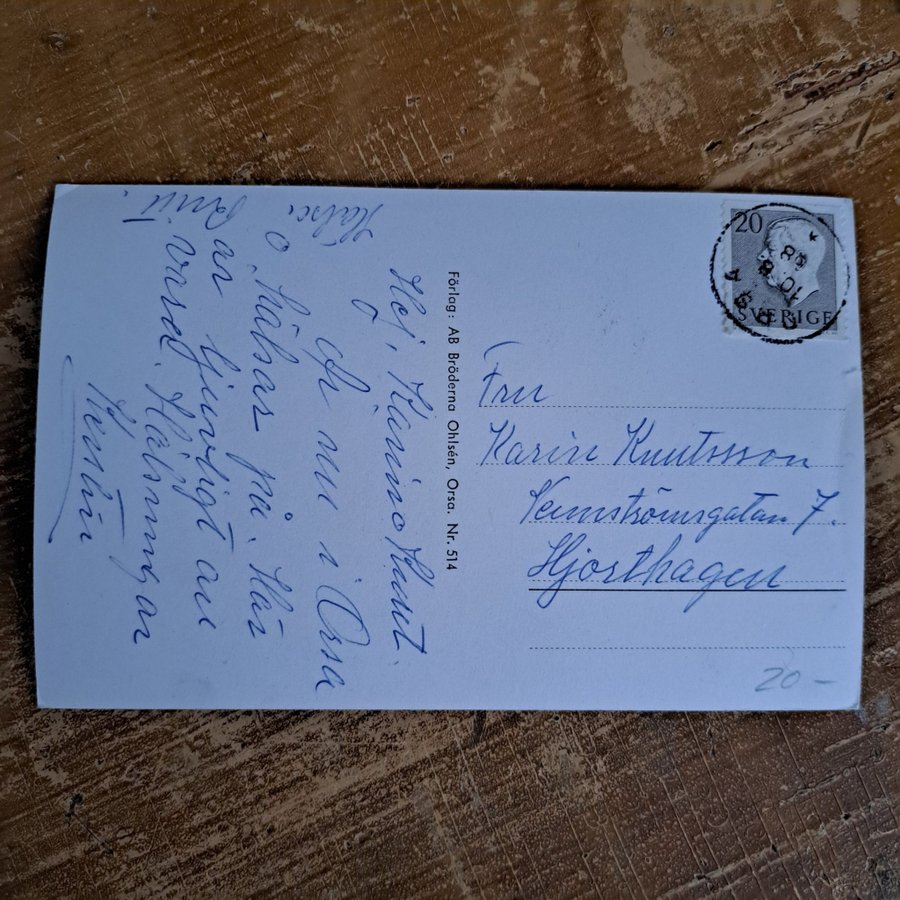 Hej, Karin o Knut.
Är nu i Orsa
o hälsar på. Här
är ljuvligt att
vara. Hälsningar
Kerstin
Förlag: AB Bröderna Ohlsén, Orsa. Nr. 514
20
SVERIGE
ORSA
Fru
Karin Knutsson
Hjorthagen
20 –